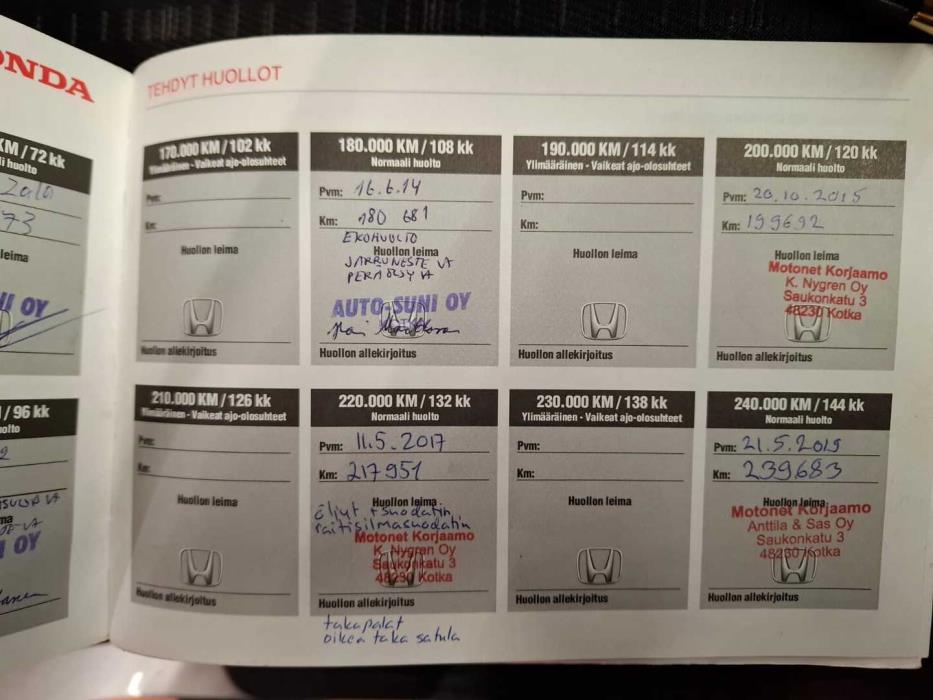 ONDA
KM / 72 kk
li huolto
2010
73
leima
NI OY
/ 96 kk
olto
2
ma
OY
TEHDYT HUOLLOT
170.000 KM / 102 kk
Ylimääräinen - Vaikeat ajo-olosuhteet
Pvm:
Km:
Huollon leima
Huollon allekirjoitus
180.000 KM / 108 kk
Normaali huolto
Pvm: 16.6.14
Km: 180 681
EKOHUOLTO
Huollon leima
JARRUNESTE VA
PERÄÖLJY VA
AUTO-SUNI OY
Huollon allekirjoitus
190.000 KM / 114 kk
Ylimääräinen - Vaikeat ajo-olosuhteet
Pvm:
Km:
Huollon leima
Huollon allekirjoitus
200.000 KM / 120 kk
Normaali huolto
Pvm: 20.10.2015
Km: 199692
Huollon leima
Motonet Korjaamo
K. Nygren Oy
Saukonkatu 3
48230 Kotka
Huollon allekirjoitus
210.000 KM / 126 kk
Ylimääräinen - Vaikeat ajo-olosuhteet
Pvm:
Km:
Huollon leima
Huollon allekirjoitus
220.000 KM / 132 kk
Normaali huolto
Pvm: 11.5.2017
Km: 217951
Huollon leima
öljyt + suodatin
raitisilmasuodatin
Motonet Korjaamo
K. Nygren Oy
Saukonkatu 3
48230 Kotka
Huollon allekirjoitus
takapalat
oikea taka satula
230.000 KM / 138 kk
Ylimääräinen - Vaikeat ajo-olosuhteet
Pvm:
Km:
Huollon leima
Huollon allekirjoitus
240.000 KM / 144 kk
Normaali huolto
Pvm: 21.5.2019
Km: 239683
Huollon leima
Motonet Korjaamo
Anttila & Sas Oy
Saukonkatu 3
48230 Kotka
Huollon allekirjoitus